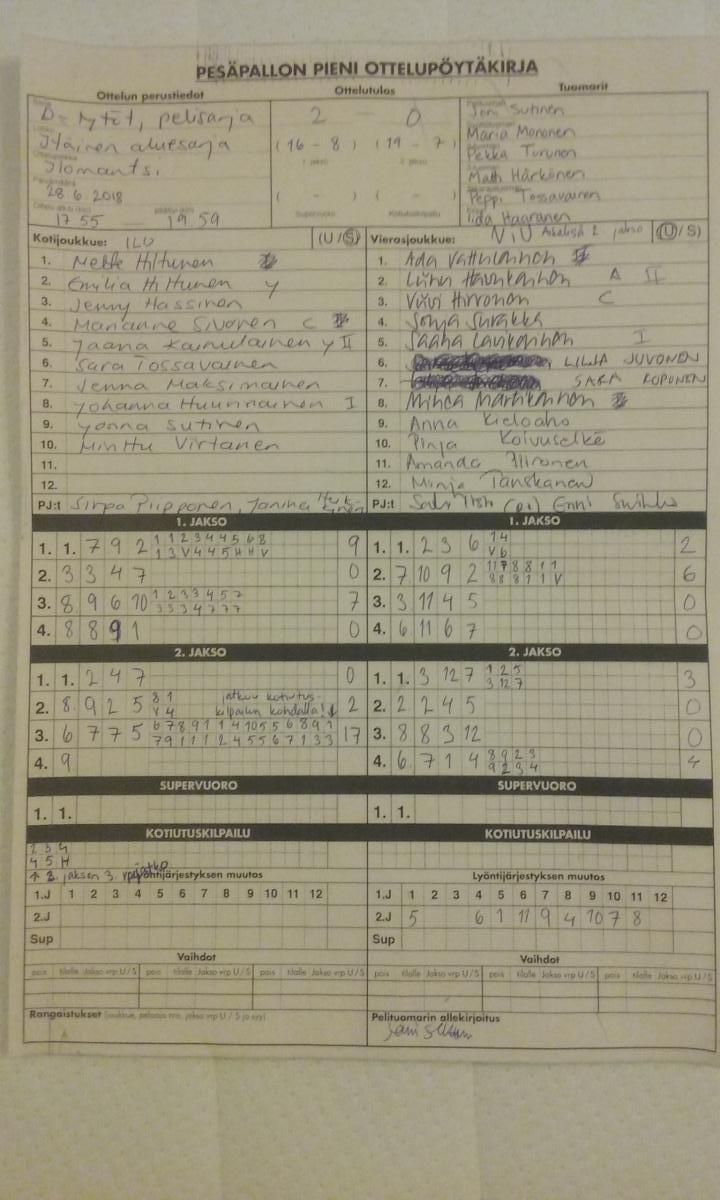 PESÄPALLON PIENI OTTELUPÖYTÄKIRJA
Ottelun perustiedot
Ottelutulos
Tuomarit
D-tytöt, pelisarja
Itäinen aluesarja
Ilomantsi
28.6.2018
17 55 — 19.59
2 — 0
(16 - 8) (19 - 7)
( - ) ( - )
Supervuoro Kotiutuskilpailu
Joni Sutinen
Maria Mononen
Pekka Turunen
Matti Härkönen
Peppi Tossavainen
Iida Hagranen
Kotijoukkue: ILU (U/S)
1. Mette Hiltunen
2. Emilia Hiltunen y
3. Jenny Hassinen
4. Marianne Sivonen C
5. Jaana Kainulainen y II
6. Sara Tossavainen
7. Jenna Maksimainen
8. Johanna Huurinainen I
9. Jonna Sutinen
10. Minttu Virtanen
11.
12.
PJ:t Sirpa Piipponen, Janina
Vierasjoukkue: NiU Aikalisä 2 jakso (U/S)
1. Ada
2. A II
3. Viivi Hirvonen C
4. Sonja Surakka
5. I
6. LILJA JUVONEN
7. SARA KOPONEN
8.
9. Anna Kieloaho
10. Pinja Koivuselkä
11. Amanda Hirvonen
12. Minja Tanskanen
PJ:t (pj) Enni
1. JAKSO
1. 1. 7 9 2 1 1 2 3 4 4 5 6 8 9
1 3 V 4 4 5 H H V
2. 3 3 4 7 0
3. 8 9 6 10 1 2 3 3 4 5 7 7
3 3 3 4 7 7 7
4. 8 8 9 1 0
1. JAKSO
1. 1. 2 3 6 1 4 2
V 6
2. 7 10 9 2 1 1 7 8 8 1 1 6
8 8 8 1 1 V
3. 3 11 4 5 0
4. 6 11 6 7 0
2. JAKSO
1. 1. 2 4 7 0
2. 8 9 2 5 8 1 jatkuu kotiutus- 2
V 4 kilpailun kohdalla! ↓
3. 6 7 7 5 6 7 8 9 1 1 4 10 5 5 6 8 9 1 17
7 9 1 1 1 2 4 5 5 6 7 1 3 3
4. 9
2. JAKSO
1. 1. 3 12 7 1 2 5 3
3 12 7
2. 2 2 4 5 0
3. 8 8 3 12 0
4. 6 7 1 4 8 9 2 3 4
9 2 3 4
SUPERVUORO
1. 1.
SUPERVUORO
1. 1.
KOTIUTUSKILPAILU
2 3 4
4 5 H
↑ 2. jakson 3. vp jatko
KOTIUTUSKILPAILU
Lyöntijärjestyksen muutos
1.J 1 2 3 4 5 6 7 8 9 10 11 12
2.J
Sup
Lyöntijärjestyksen muutos
1.J 1 2 3 4 5 6 7 8 9 10 11 12
2.J 5 6 1 11 9 4 10 7 8
Sup
Vaihdot
pois tilalle Jakso vrp U/S pois tilalle Jakso vrp U/S pois tilalle Jakso vrp U/S
Vaihdot
pois tilalle Jakso vrp U/S pois tilalle Jakso vrp U/S pois tilalle Jakso vrp U/S
Rangaistukset (joukkue, pelaaja nro, jakso vrp U / S ja syy)
Pelituomarin allekirjoitus